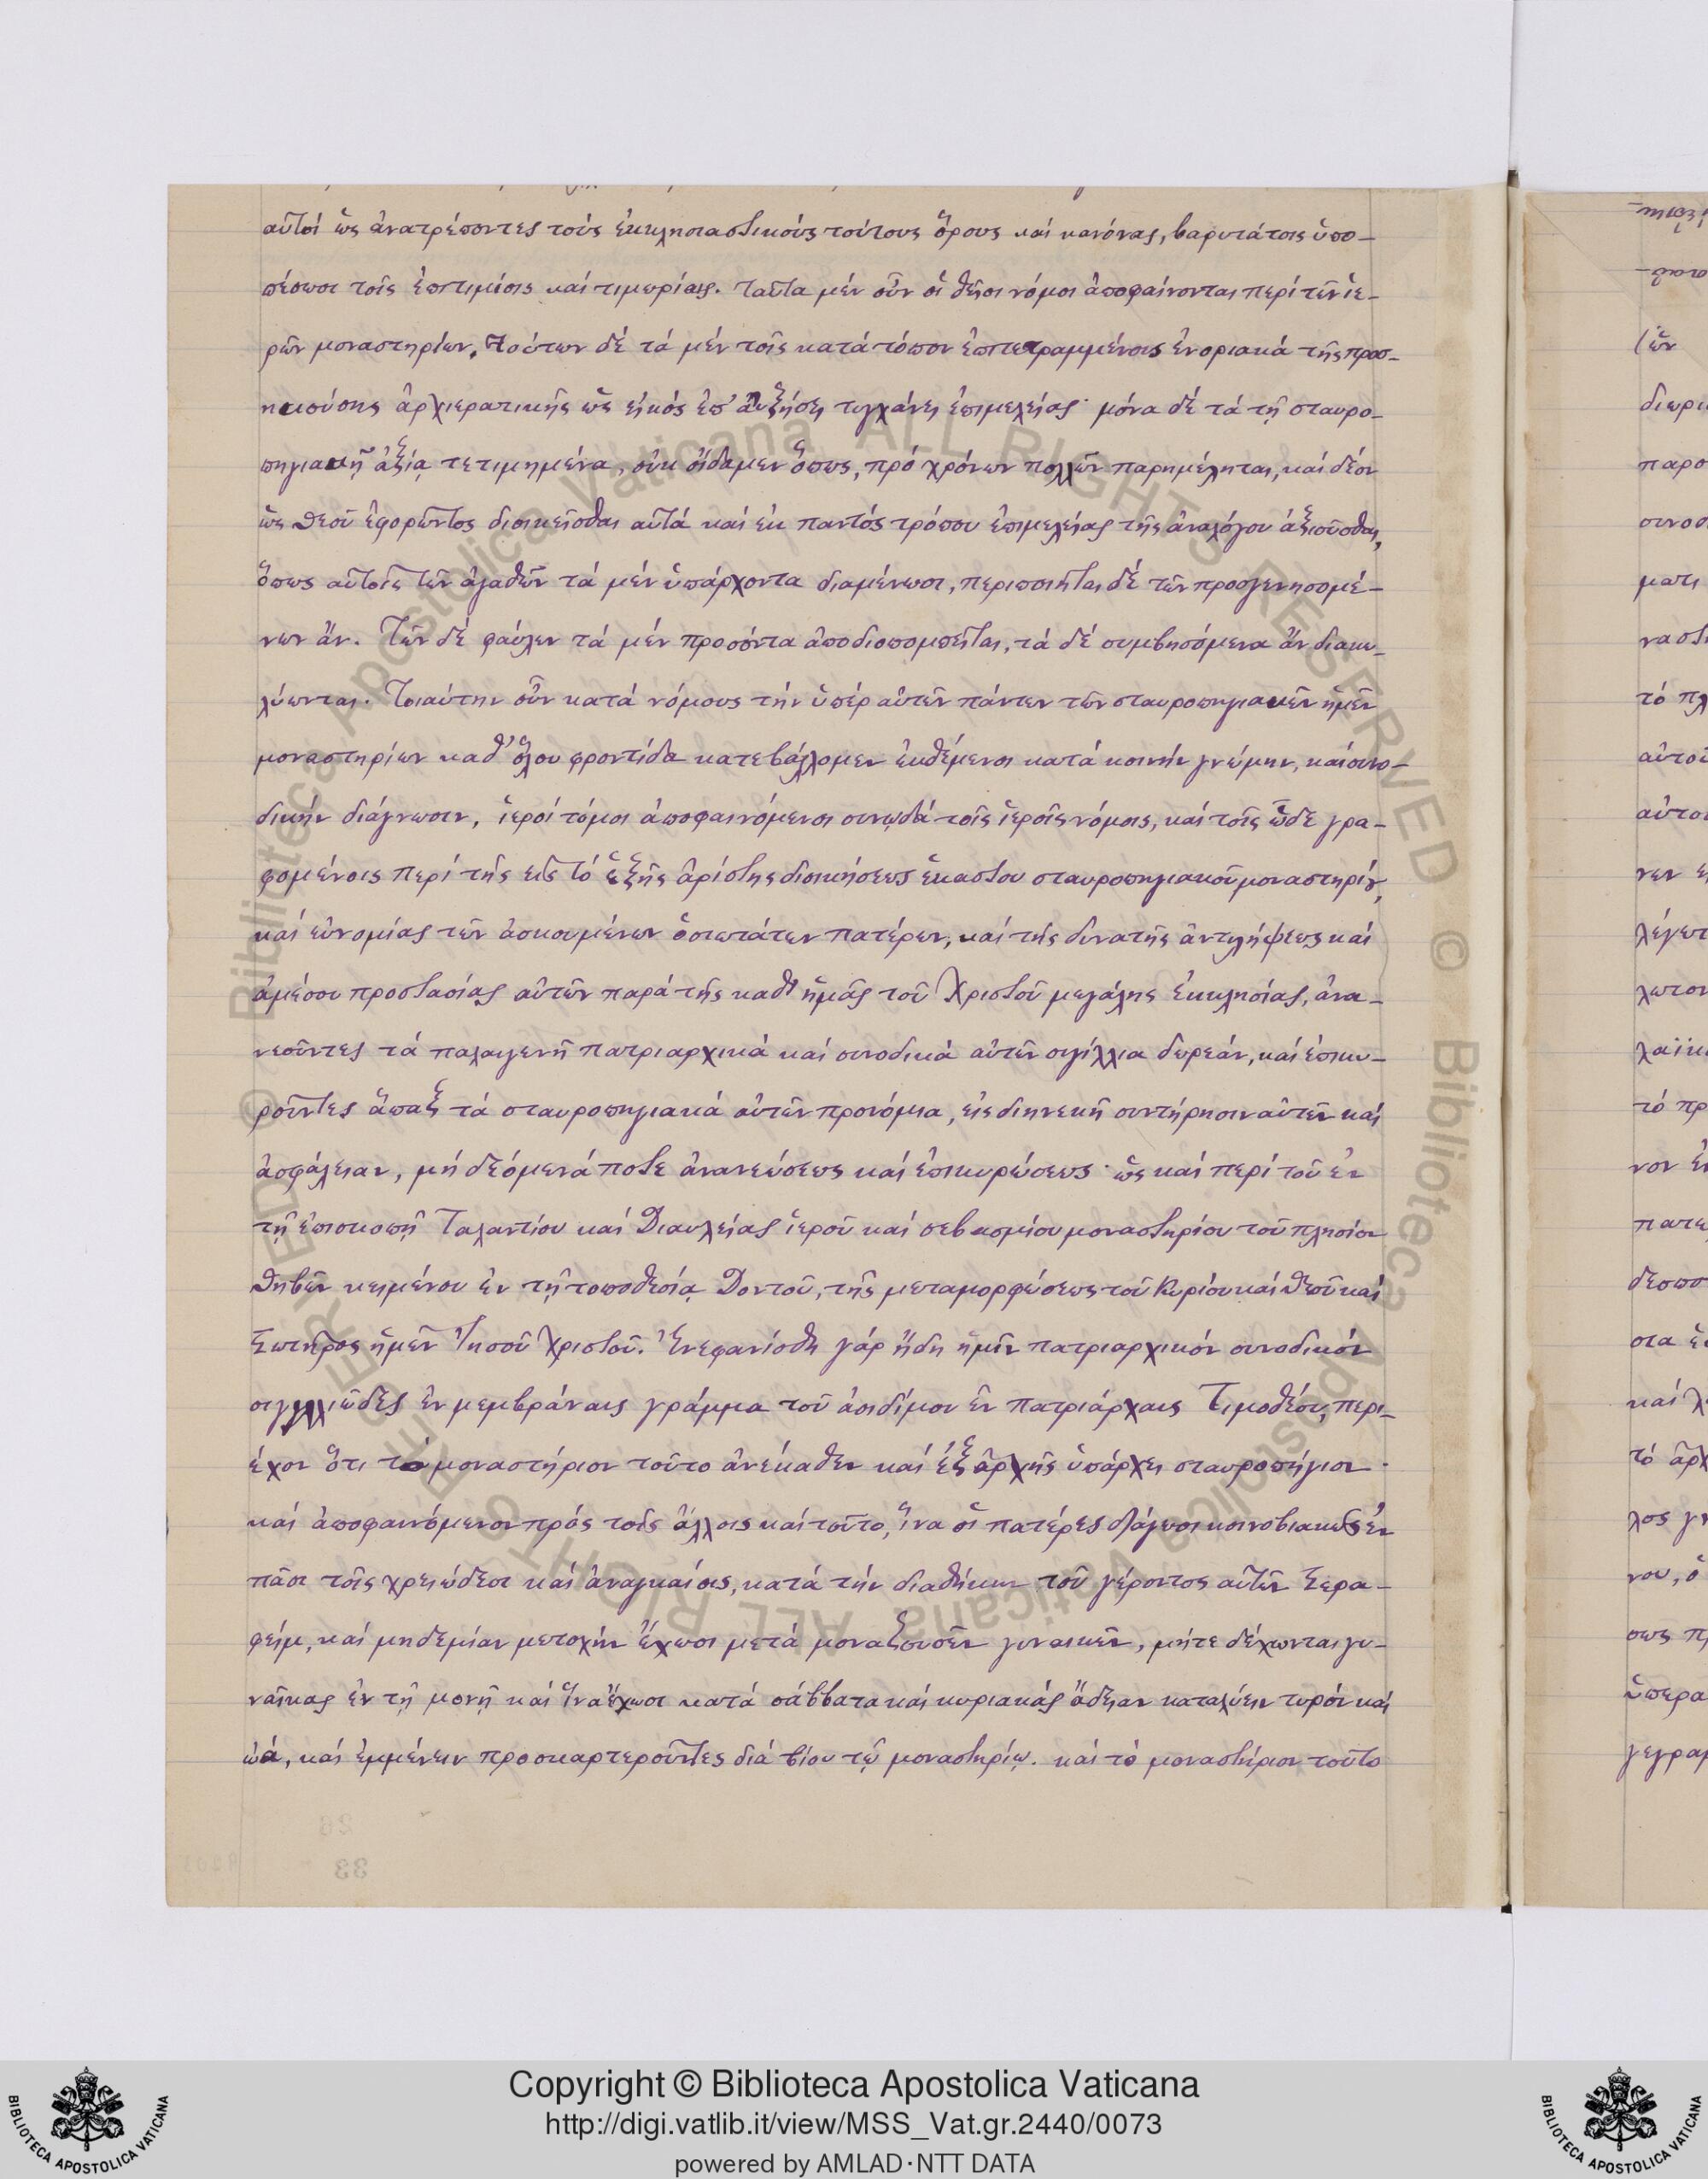 αὐτοί ὡς ἀνατρέποντες τούς ἐκκλησιαστικούς τούτους ὅρους καί κανόνας, βαρυτάτοις ὑπο-
πέσωσι τοῖς ἐπιτιμίοις καί τιμωρίαις. Ταῦτα μέν οὖν οἱ θεῖοι νόμοι ἀποφαίνονται περί τῶν ἱε-
ρῶν μοναστηρίων. Τούτων δέ τά μέν τοῖς κατά τόπον ἐπιτετραμμένοις ἐνοριακά τῆς προσ-
ηκούσης ἀρχιερατικῆς ὡς εἰκός ἐπ' αὐξήσει τυγχάνει ἐπιμελείας· μόνα δέ τά τῇ σταυρο-
πηγιακῇ ἀξίᾳ τετιμημένα, οὐκ οἴδαμεν ὅπως, πρό χρόνων πολλῶν παρημέληται, καί δέον
ὡς Θεοῦ ἐφορῶντος διοικεῖσθαι αὐτά καί ἐκ παντός τρόπου ἐπιμελείας τῆς ἀναλόγου ἀξιοῦσθαι,
ὅπως αὐτοῖς τῶν ἀγαθῶν τά μέν ὑπάρχοντα διαμένωσι, περιποιῆται δέ τῶν προσγενησομέ-
νων ἄν. Τῶν δέ φαύλων τά μέν προσόντα ἀποδιοπομπεῖται, τά δέ συμβησόμενα ἄν διακω-
λύωνται. Τοιαύτην οὖν κατά νόμους τήν ὑπέρ αὐτῶν πάντων τῶν σταυροπηγιακῶν ἡμῶν
μοναστηρίων καθ' ὅλου φροντίδα κατεβάλλομεν ἐκθέμενοι κατά κοινήν γνώμην, καί συνο-
δικήν διάγνωσιν, ἱεροί τόμοι ἀποφαινόμενοι συνῳδά τοῖς ἱεροῖς νόμοις, καί τοῖς ὧδε γρα-
φομένοις περί τῆς εἰς τό ἑξῆς ἀρίστης διοικήσεως ἑκάστου σταυροπηγιακοῦ μοναστηρίου,
καί εὐνομίας τῶν ἀσκουμένων ὁσιωτάτων πατέρων, καί τῆς δυνατῆς ἀντιλήψεως καί
ἀμέσου προστασίας αὐτῶν παρά τῆς καθ' ἡμᾶς τοῦ Χριστοῦ μεγάλης ἐκκλησίας, ἀνα-
νεοῦντες τά παλαιγενῆ πατριαρχικά καί συνοδικά αὐτῶν σιγίλλια δωρεάν, καί ἐπικυ-
ροῦντες ἅπαξ τά σταυροπηγιακά αὐτῶν προνόμια, εἰς διηνεκῆ συντήρησιν αὐτῶν καί
ἀσφάλειαν, μή δεόμενά ποτε ἀνανεώσεως καί ἐπικυρώσεως· ὡς καί περί τοῦ ἐν
τῇ ἐπισκοπῇ Ταλαντίου καί Διαυλείας ἱεροῦ καί σεβασμίου μοναστηρίου τοῦ πλησίον
Θηβῶν κειμένου ἐν τῇ τοποθεσίᾳ Δοντοῦ, τῆς μεταμορφώσεως τοῦ Κυρίου καί Θεοῦ καί
Σωτῆρος ἡμῶν Ἰησοῦ Χριστοῦ. Ἐνεφανίσθη γάρ ἤδη ἡμῖν πατριαρχικόν συνοδικόν
σιγιλλιῶδες ἐν μεμβράναις γράμμα τοῦ ἀοιδίμου ἐν πατριάρχαις Τιμοθέου, περι-
έχον ὅτι τό μοναστήριον τοῦτο ἀνέκαθεν καί ἐξ ἀρχῆς ὑπάρχει σταυροπήγιον·
καί ἀποφαινόμενον πρός τοῖς ἄλλοις καί τοῦτο, ἵνα οἱ πατέρες διάγωσι κοινοβιακῶς ἐν
πᾶσι τοῖς χρειώδεσι καί ἀναγκαίοις, κατά τήν διαθήκην τοῦ γέροντος αὐτῶν Σερα-
φείμ, καί μηδεμίαν μετοχήν ἔχωσι μετά μοναζουσῶν γυναικῶν, μήτε δέχωνται γυ-
ναῖκας ἐν τῇ μονῇ καί ἵνα ἔχωσι κατά σάββατα καί κυριακάς ἄδειαν καταλύειν τυρόν καί
ὠά, καί ἐμμένειν προσκαρτεροῦντες διά βίου τῷ μοναστηρίῳ. καί τό μοναστήριον τοῦτο
Copyright © Biblioteca Apostolica Vaticana
http://digi.vatlib.it/view/MSS_Vat.gr.2440/0073
powered by AMLAD·NTT DATA